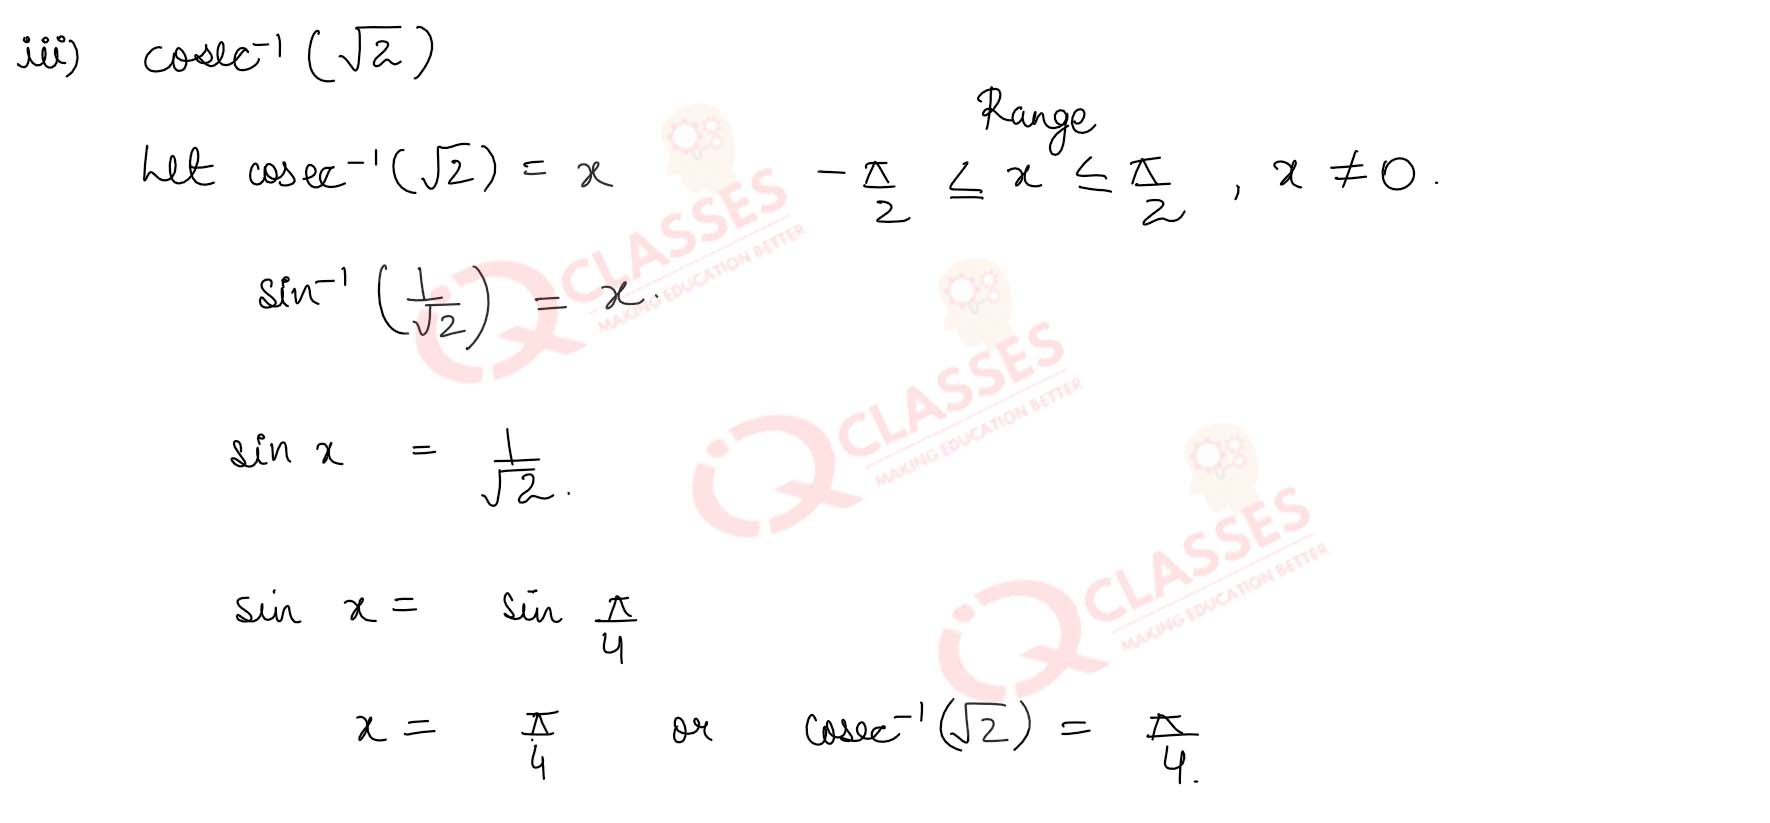 iii) cosec⁻¹(√2)
Range
Let cosec⁻¹(√2) = x -π/2 ≤ x ≤ π/2 , x ≠ 0.
sin⁻¹(1/√2) = x.
sin x = 1/√2.
sin x = sin π/4
x = π/4 or cosec⁻¹(√2) = π/4.
iQ CLASSES
MAKING EDUCATION BETTER
iQ CLASSES
MAKING EDUCATION BETTER
iQ CLASSES
MAKING EDUCATION BETTER